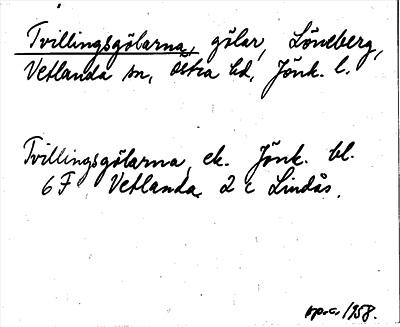 Tvillingsgölarna, gölar, Lönneberg,
Vetlanda sn, Östra hd, Jönk. l.
Tvillingsgölarna, ek. Jönk. bl.
6 F Vetlanda 2 c Lindås.
1958.